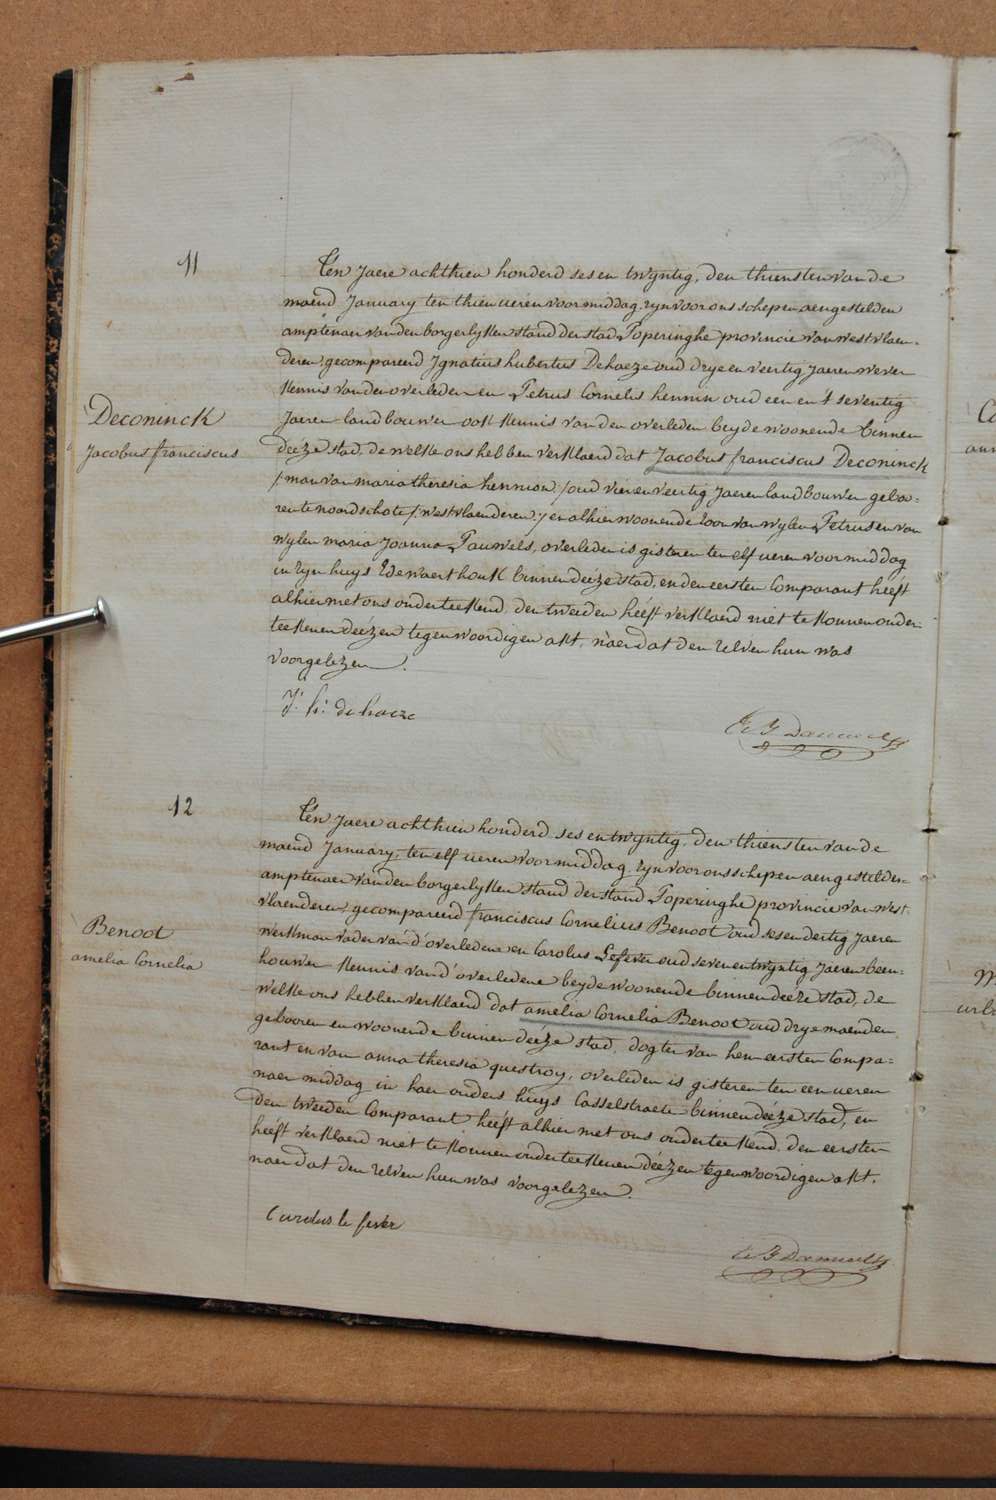 11
Ten Jaere achthien honderd ses en twyntig, den thiensten van de
maend January ten thien ueren voormiddag, zyn voor ons schepen aengestelden
amptenaer van den borgerlyken stand der stad Poperinghe provincie van westvlaen-
deren, gecompareerd Ignatius hubertus Dehaeze oud drye en veertig Jaeren wever
kennis van den overleden en Petrus Cornelis hennin oud een en 't seventig
Jaeren landbouwer ook kennis van den overleden beyde woonende binnen
Deconinck
Jacobus franciscus
deeze stad, de welke ons hebben verklaerd dat Jacobus franciscus Deconinck
/man van maria theresia hennion/ oud vier en veertig Jaeren landbouwer gebo-
ren te noordschote /westvlaenderen/ en alhier woonende zoon van wylen Petrus en van
wylen maria Joanna Pauwels, overleden is gisteren ten elf ueren voormiddag
in zyn huys Edewaerthouk binnen deéze stad, en den eersten Comparant heéft
alhier met ons onderteekend, den tweeden heéft verklaerd niet te konnen onder-
teekenen deézen tegenwoordigen akt, naer dat den zelven hun was
voorgelezen.
J. h. de haeze
12
Ten Jaere achthien honderd ses en twyntig, den thiensten van de
maend January, ten elf ueren voormiddag, zyn voor ons schepen aengestelden
amptenaer van den borgerlyken stand der stand Poperinghe provincie van west-
vlaenderen, gecompareerd franciscus Cornelius Benoot oud ses en dertig Jaeren
Benoot
amelia Cornelia
werkman vader van d'overledene en Carolus Lefever oud seven en twyntig Jaeren been-
houwer kennis van d'overledene beyde woonende binnen deeze stad, de
welke ons hebben verklaerd dat amelia Cornelia Benoot oud drye maenden
gebooren en woonende binnen deéze stad, dogter van hem eersten Compa-
rant en van anna theresia questroy, overleden is gisteren ten een ueren
naer middag in haer ouders huys Casselstraete binnen deéze stad, en
den tweeden Comparant heéft alhier met ons onderteekend, den eersten
heéft verklaerd niet te konnen onderteekenen deézen tegenwoordigen akt,
naer dat den zelven hun was voorgelezen.
Carolus le fever